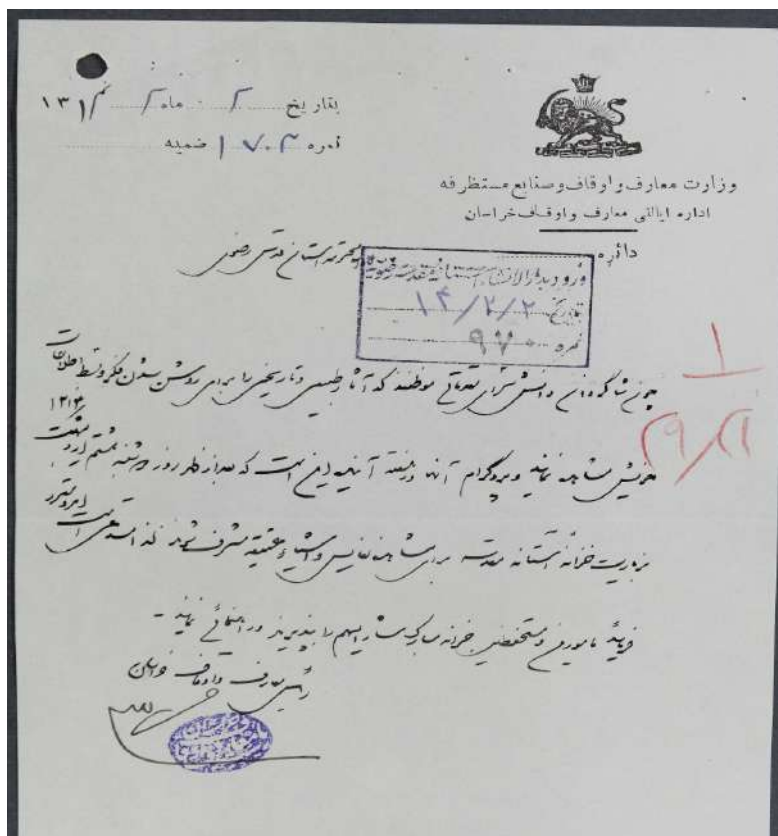 بتاریخ ۲ ماه ۲ ۱۳۱۴
نمره ۱۷۰۳ ضمیمه
وزارت معارف و اوقاف و صنایع مستظرفه
اداره ایالتی معارف و اوقاف خراسان
دائره
محترم آستان قدس رضوی
ورود بدارالانشاء آستانه مقدسه رضویه
بتاریخ ۱۴/۲/۲
نمره ۹۷۰
۱
۲۹/۲۱
چون شاگردان دانش سرای مقدماتی موظفند که آثار طبیعی و تاریخی را برای روشن شدن فکر و بسط اطلاعات
خویش مشاهده نمایند و پروگرام آنها در هفته آینده این است که بعد از ظهر روز شنبه هشتم اردیبهشت ۱۳۱۴
بزیارت خزانه آستانه مقدسه برای مشاهده نفایس و اشیاء عتیقه مشرف شوند لذا مستدعی است امر و مقرر
فرمایند مأمورین و مستحفظین خزانه مبارکه مشارالیهم را بپذیرند و راهنمائی نمایند -
رئیس معارف و اوقاف خراسان